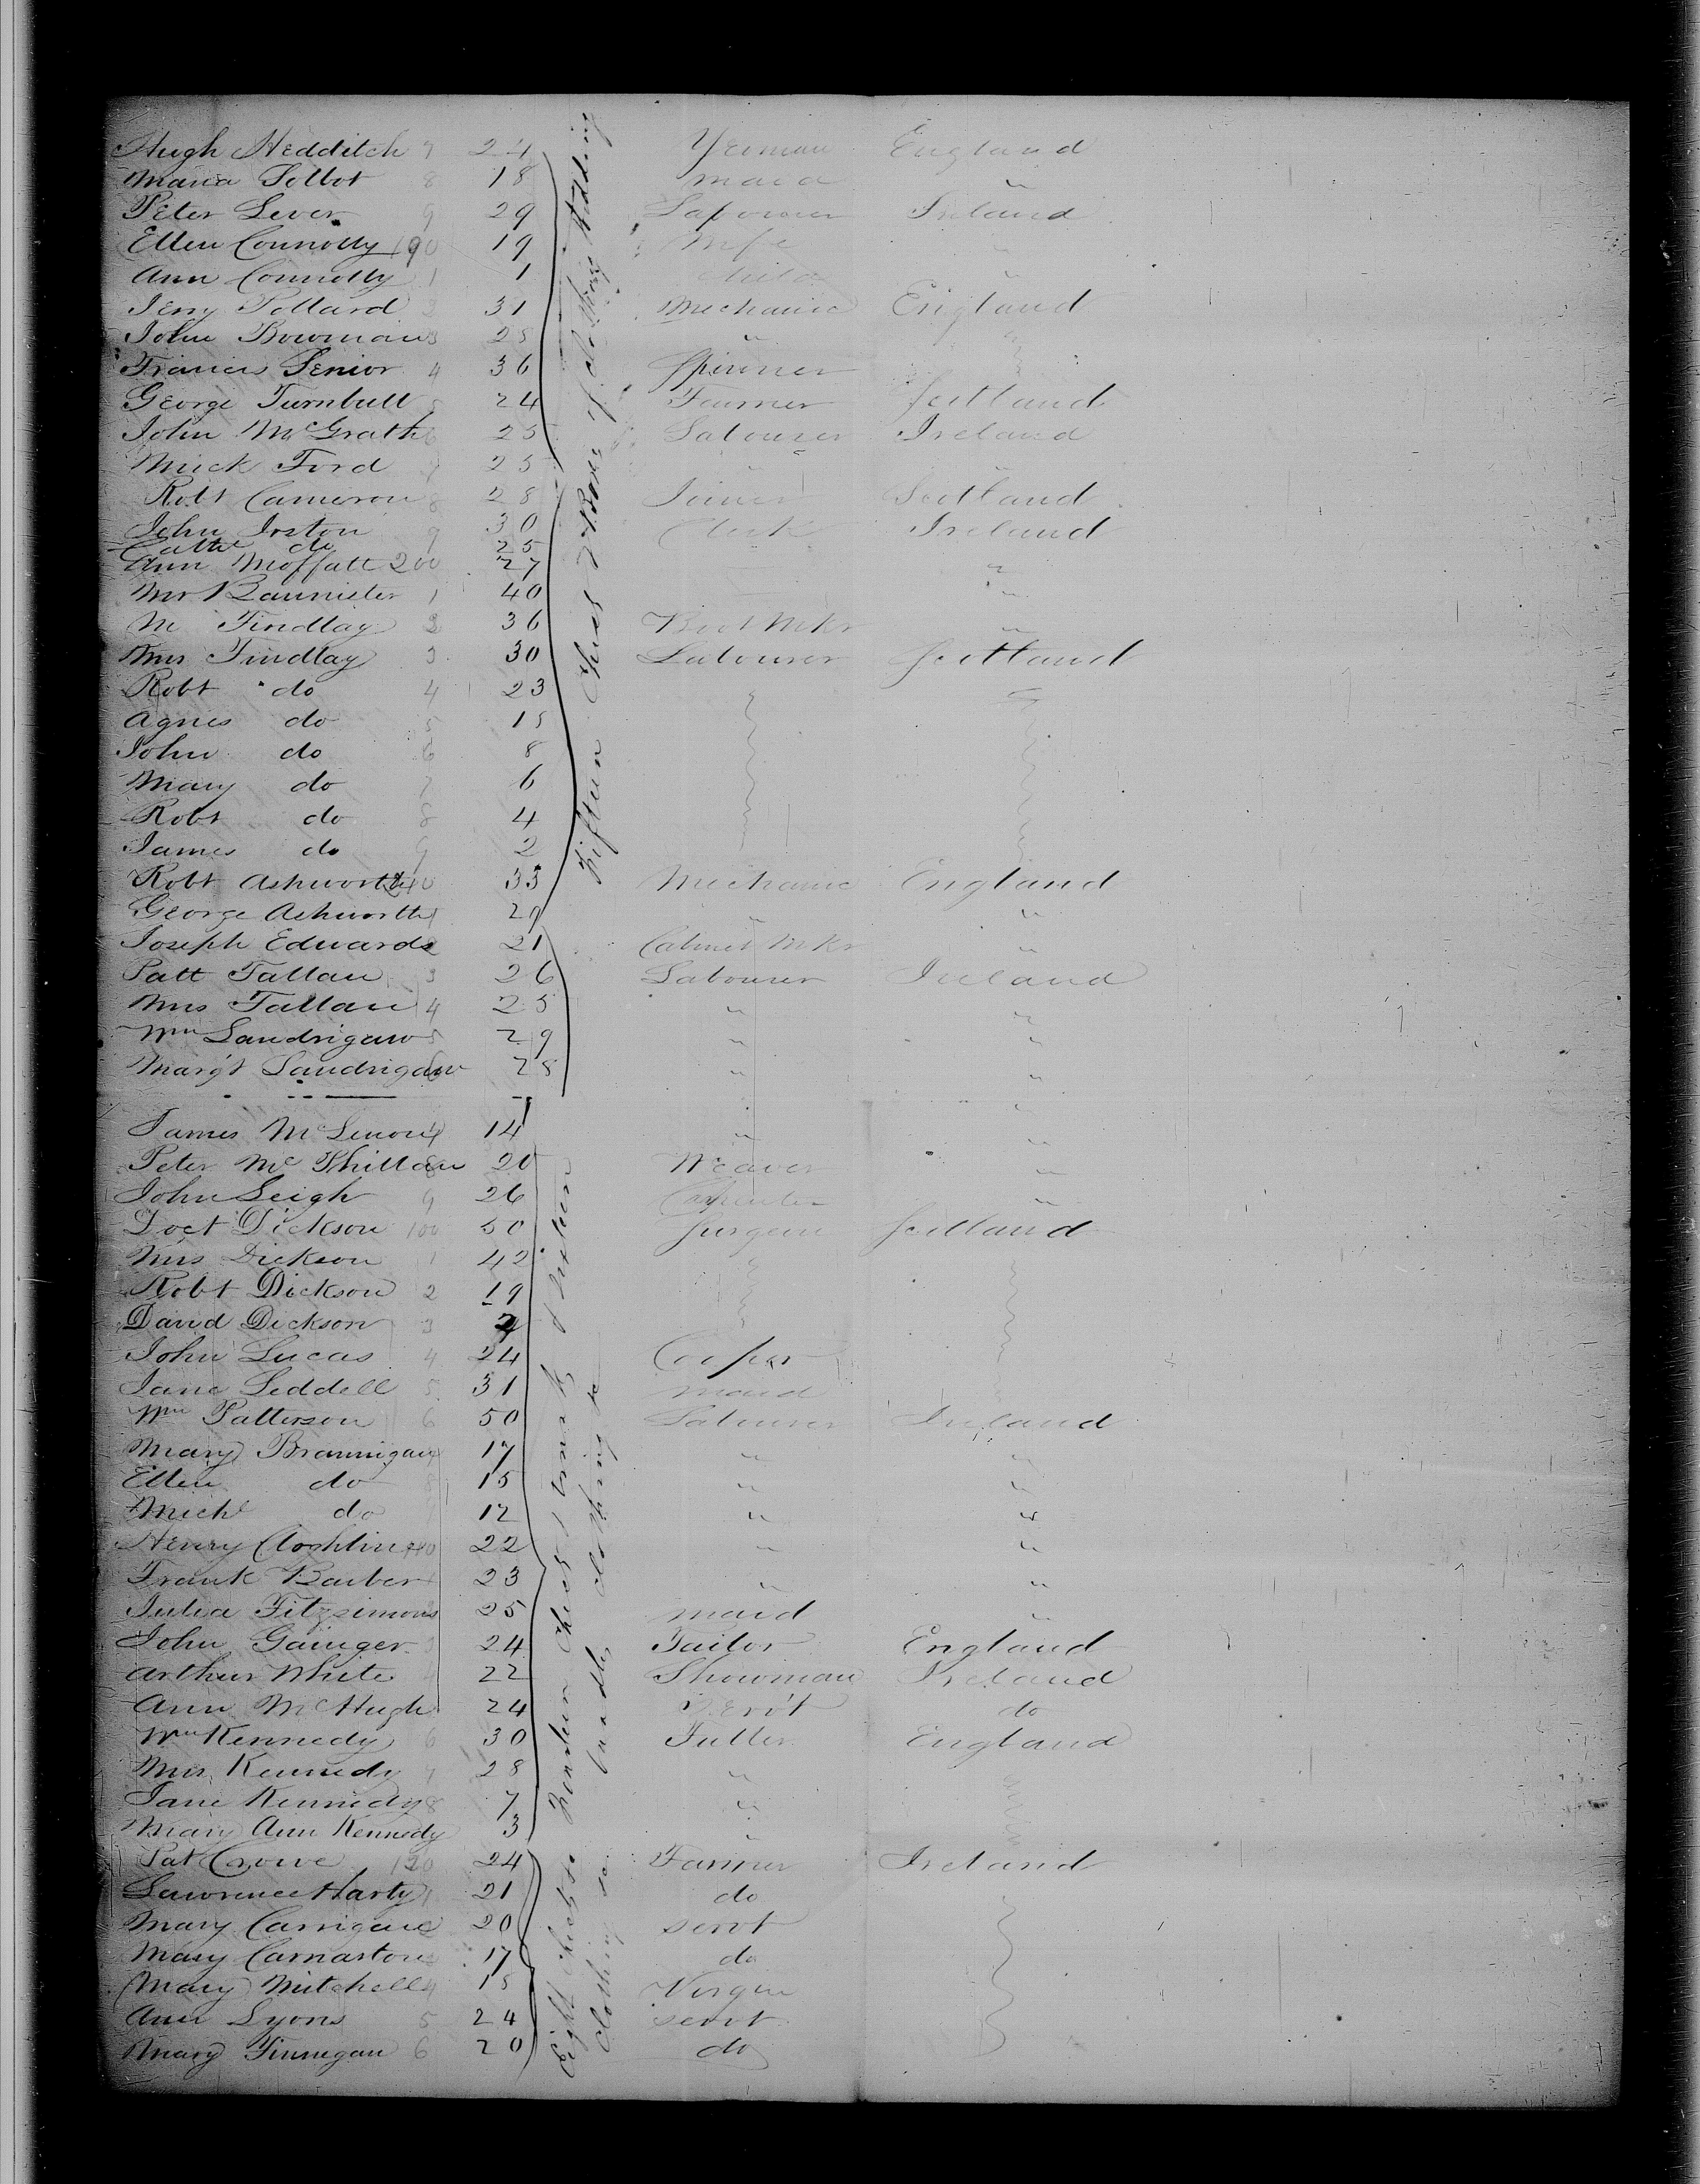 Hugh Hedditch 7 24 Yeoman England
Maria Tolbot 8 18 maid "
Peter Lever 9 29 Labourer Ireland
Ellen Connolly 190 19 Wife "
Ann Connolly 1 1 child "
Jerry Pollard 2 31 Mechanic England
John Bowman 3 28 "
Francis Senior 4 36 Spinner
George Turnbull 5 24 Farmer Scotland
John McGrath 6 25 Labourer Ireland
Mick Ford 7 25 " "
Robt Cameron 8 28 Joiner Scotland
John Irston 9 30 Clerk Ireland
Cathe do 25
Ann Moffatt 200 27 "
Mr Bannister 1 40 "
M Findlay 2 36 Boot Mkr "
Mrs Findlay 3 30 Labourer Scotland
Robt do 4 23
Agnes do 5 15
John do 6 8
Mary do 7 6
Robt do 8 4
James do 9 2
Robt Ashworth 33 Mechanic England
George Ashworth 1 29 " "
Joseph Edwards 2 21 Cabinet Mkr "
Patt Tallan 3 26 Labourer Ireland
Mrs Tallan 4 25 " "
Wm Landrigan 5 29 " "
Margt Landrigan 6 28 " "
James McLenon 14 " "
Peter Mc 20 Weaver "
John Leigh 9 26 Carpenter "
Doct Dickson 100 50 Surgeon Scotland
Mrs Dickson 1 42
Robt Dickson 2 19
David Dickson 3
John Lucas 4 24 Cooper
Jane Leddell 5 31 maid
Wm Patterson 6 50 Labourer Ireland
Mary Brannigan 7 17 " "
Ellen do 8 15 " "
Michl do 12 " "
Henry 110 22 " "
Frank Barber 23 " "
Julia Fitzsimons 25 maid "
John Gainger 3 24 Tailor England
Arthur White 4 22 Showman Ireland
Ann McHugh 24 Servt do
Wm Kennedy 6 30 Fuller England
Mrs Kennedy 7 28 "
Jane Kennedy 8 7 "
Mary Ann Kennedy 3 "
Pat Crowe 120 24 Farmer Ireland
Lawrence Harty 1 21 do
Mary Carrigan 2 20 servt
Mary Carnaston 17 do
Mary Mitchell 4 18 Virgin
Ann Lyons 5 24 servt
Mary Finnegan 6 20 do
Fifteen Chest 7 Boxes of Clothing Bedding
Chest 1 trunk
clothing
Eight Chests
Clothing